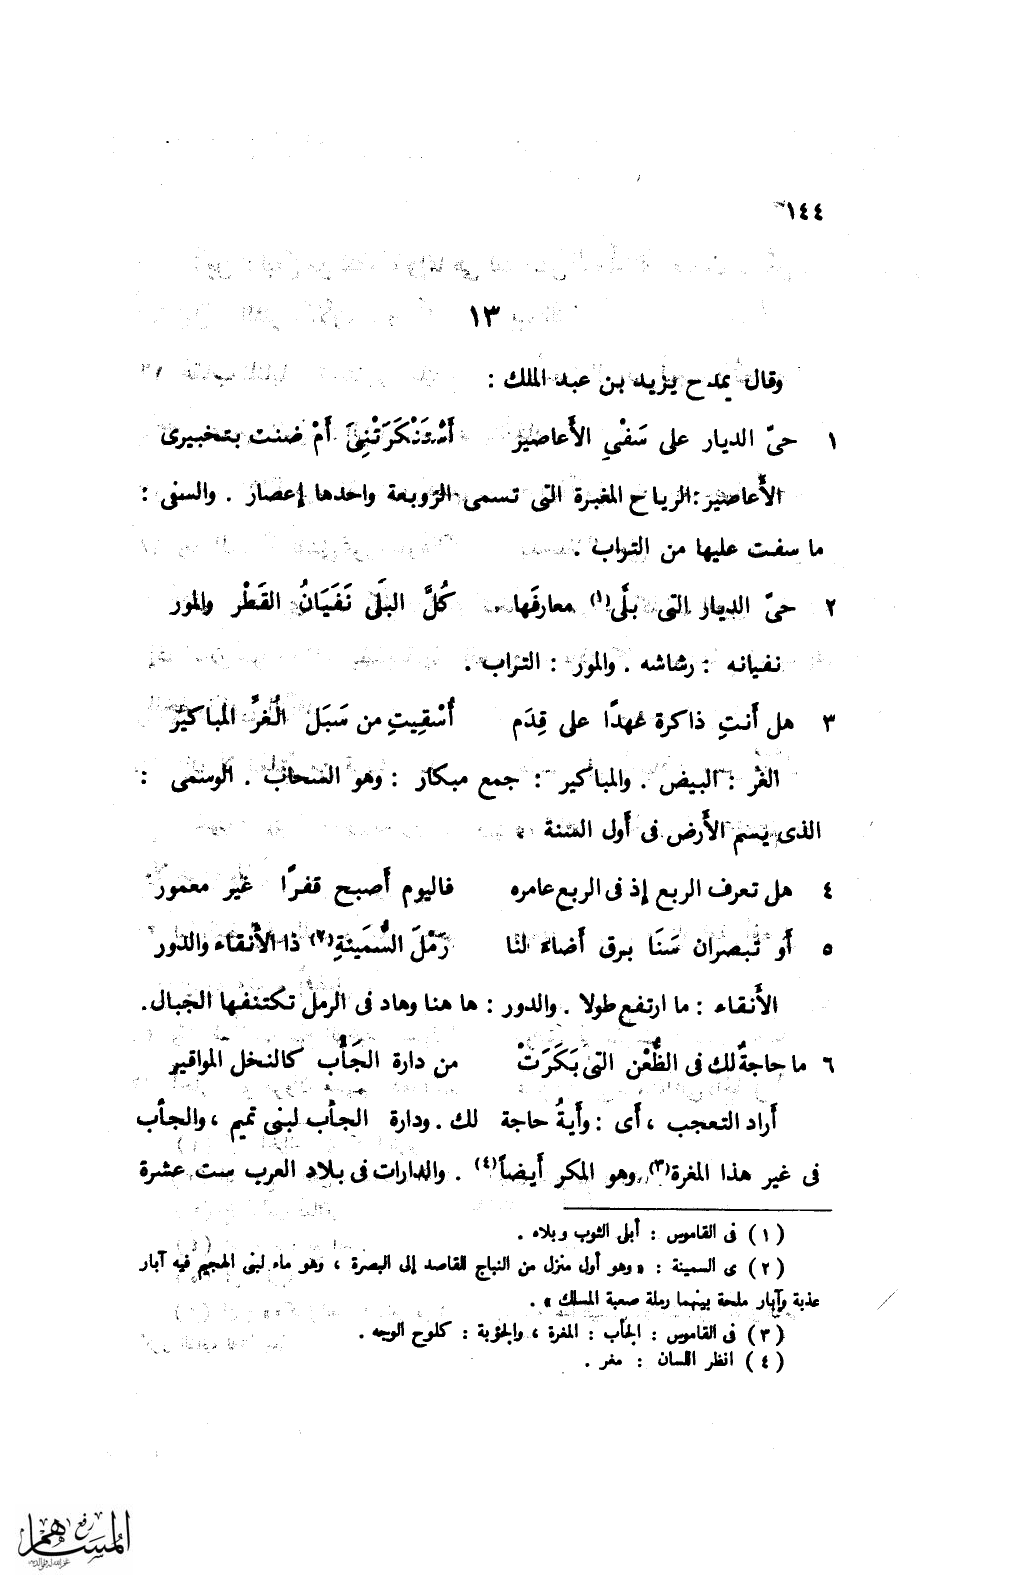 ١٤٤
١٣
وقال يمدح يزيد بن عبد الملك :
١ حىّ الديار على سَفْىِ الأَعاصير أَسْتَنْكَرَتْنِىَ أَمْ ضنت بتخبيرى
الأَعاصير : الرياح المغبرة التى تسمى الزوبعة واحدها إعصار . والسفى :
ما سفت عليها من التراب .
٢ حىّ الديار التى بلَّى(١) معارفَها كُلَّ البلَى نَفَيَانُ القَطْر والمور
نفيانه : رشاشه . والمور : التراب .
٣ هل أَنتِ ذاكرة عهدًا على قِدَم أُسْقِيتِ من سَبَل الْغرِّ المباكير
الغر : البيض . والمباكير : جمع مبكار : وهو السحاب . الوسمى :
الذى يسم الأَرض فى أَول السنة .
٤ هل تعرف الربع إذ فى الربع عامره فاليوم أَصبح قفرًا غير معمور
٥ أَو تُبصران سَنَا برق أَضاءَ لنا رَمْلَ السُّمَينةِ(٢) ذا الأَنقاء والدور
الأَنقاء : ما ارتفع طولا . والدور : ها هنا وهاد فى الرمل تكتنفها الجبال.
٦ ما حاجةٌ لك فى الظُّعْن التى بَكَرَتْ من دارة الجَأْب كالنخل المواقير
أَراد التعجب ، أَى : وأَيةُ حاجة لك . ودارة الجأب لبنى تميم ، والجأب
فى غير هذا المغرة(٣) وهو المكر أَيضاً(٤) . والدارات فى بلاد العرب ست عشرة
(١) فى القاموس : أبلى الثوب وبلاه .
(٢) ى السمينة : « وهو أول منزل من النباج للقاصد إلى البصرة ، وهو ماء لبنى الهجيم فيه آبار
عذبة وآبار ملحة بينهما رملة صعبة المسلك » .
(٣) فى القاموس : الجأب : المغرة ، والجؤبة : كلوح الوجه .
(٤) انظر اللسان : مغر .
رفع
المساهم